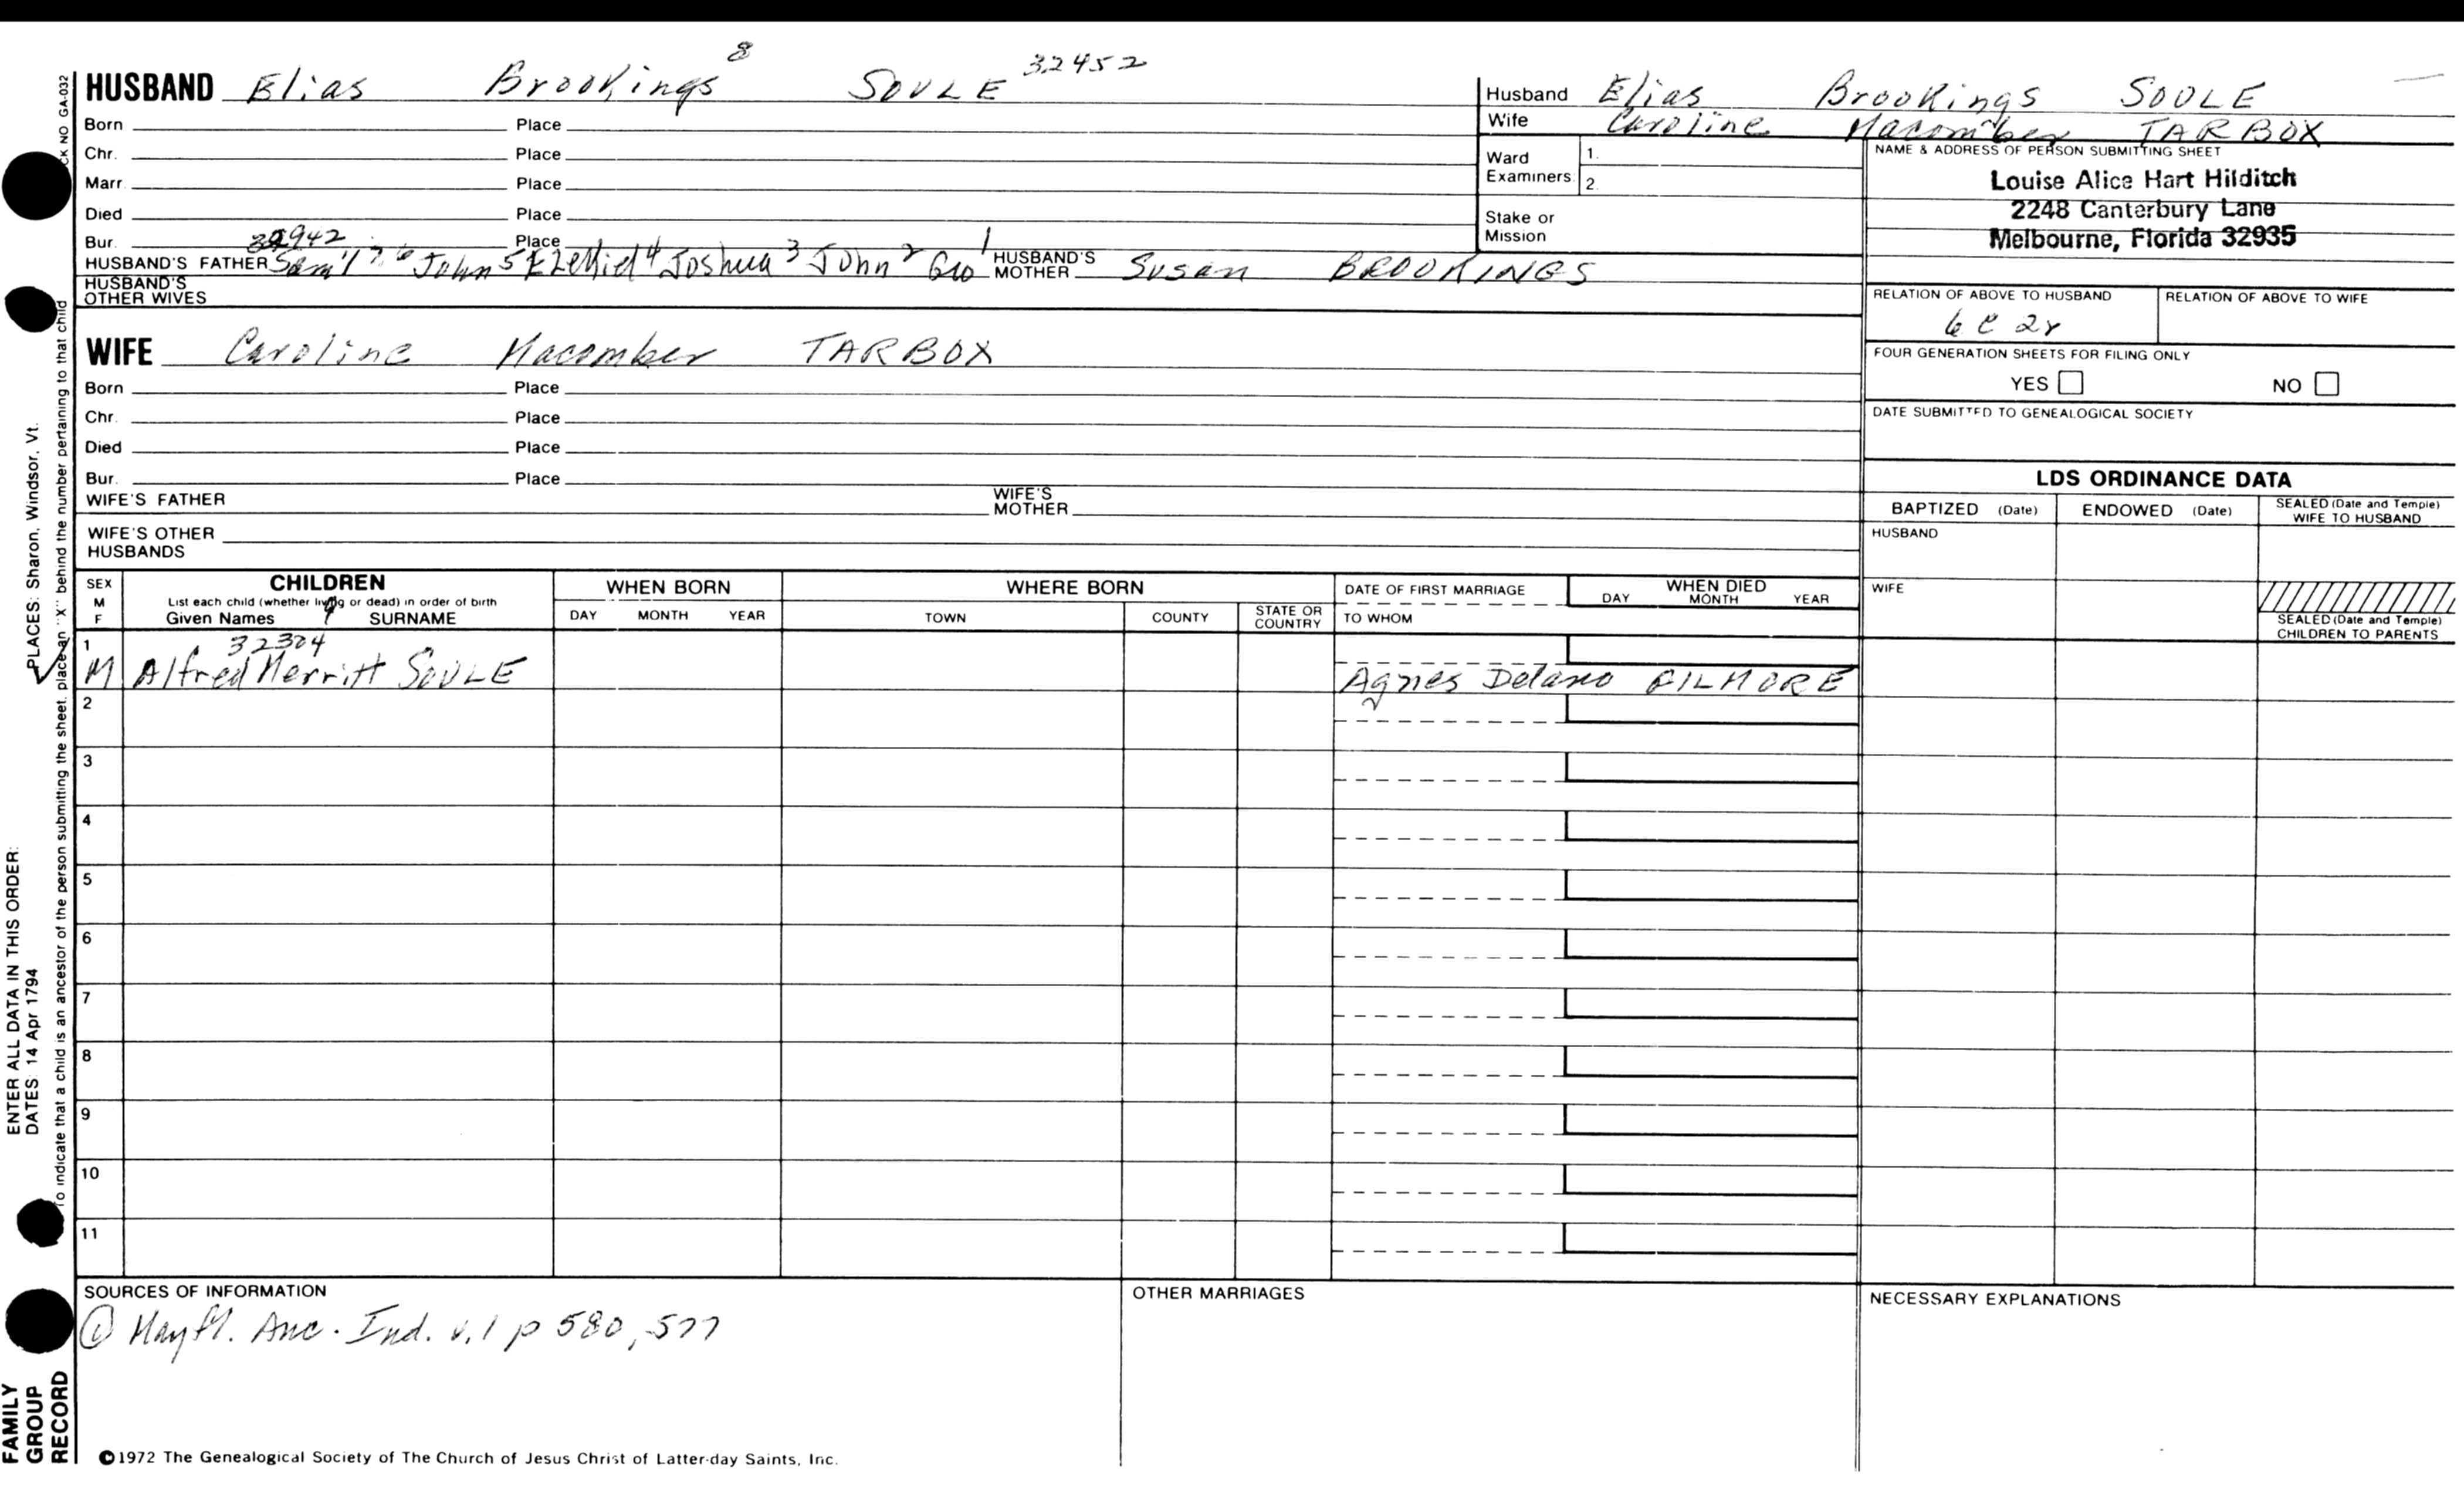 HUSBAND Elias Brookings 8 SOULE 32452
Born Place
Chr. Place
Marr. Place
Died Place
Bur. Place
32942
HUSBAND'S FATHER Sam'l 7 6 John 5 Ezekiel 4 Joshua 3 John 2 Geo 1 HUSBAND'S MOTHER Susan BROOKINGS
HUSBAND'S OTHER WIVES
WIFE Caroline Macomber TARBOX
Born Place
Chr. Place
Died Place
Bur. Place
WIFE'S FATHER WIFE'S MOTHER
WIFE'S OTHER HUSBANDS
Husband Elias Brookings SOULE
Wife Caroline Macomber TARBOX
Ward Examiners 1. 2.
Stake or Mission
NAME & ADDRESS OF PERSON SUBMITTING SHEET
Louise Alice Hart Hilditch
2248 Canterbury Lane
Melbourne, Florida 32935
RELATION OF ABOVE TO HUSBAND RELATION OF ABOVE TO WIFE
6 C 2r
FOUR GENERATION SHEETS FOR FILING ONLY
YES NO
DATE SUBMITTED TO GENEALOGICAL SOCIETY
LDS ORDINANCE DATA
BAPTIZED (Date) ENDOWED (Date) SEALED (Date and Temple) WIFE TO HUSBAND
HUSBAND
WIFE
SEALED (Date and Temple) CHILDREN TO PARENTS
SEX M F
CHILDREN
List each child (whether living or dead) in order of birth
Given Names SURNAME
WHEN BORN
DAY MONTH YEAR
WHERE BORN
TOWN COUNTY STATE OR COUNTRY
DATE OF FIRST MARRIAGE
TO WHOM
WHEN DIED
DAY MONTH YEAR
1 32304
M Alfred Merritt SOULE Agnes Delano GILMORE
2
3
4
5
6
7
8
9
10
11
SOURCES OF INFORMATION
① Mayfl. Anc. Ind. v.1 p 580, 577
OTHER MARRIAGES
NECESSARY EXPLANATIONS
©1972 The Genealogical Society of The Church of Jesus Christ of Latter-day Saints, Inc.
FAMILY GROUP RECORD
ENTER ALL DATA IN THIS ORDER:
DATES: 14 Apr 1794
PLACES: Sharon, Windsor, Vt.
To indicate that a child is an ancestor of the person submitting the sheet, place an "X" behind the number pertaining to that child
CK NO GA-032